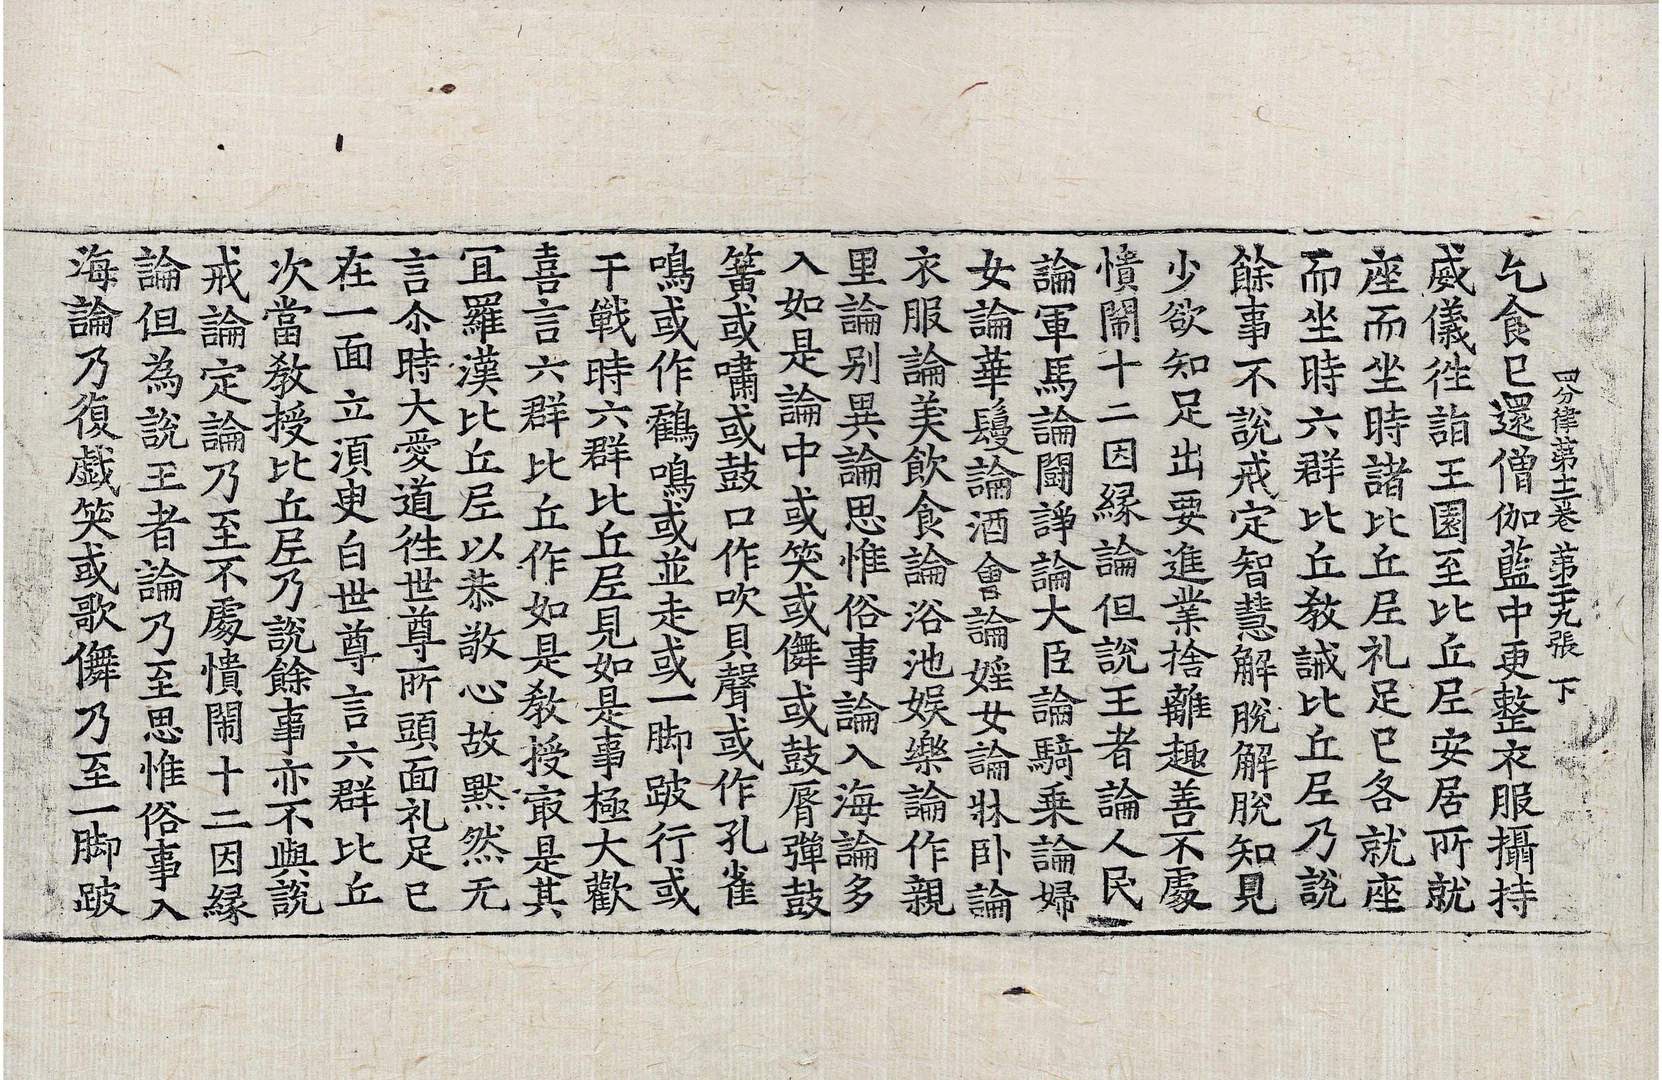 四分律第十二卷 第十九張 下
乞食已還僧伽藍中更整衣服攝持
威儀徃詣王園至比丘尼安居所就
座而坐時諸比丘尼礼足已各就座
而坐時六群比丘教誡比丘尼乃說
餘事不說戒定智慧解脫解脫知見
少欲知足出要進業捨離趣善不處
憒閙十二因緣論但說王者論人民
論軍馬論鬪諍論大臣論騎乗論婦
女論華鬘論酒會論婬女論牀卧論
衣服論美飲食論浴池娛樂論作親
里論别異論思惟俗事論入海論多
入如是論中或笑或儛或鼓脣彈鼓
簧或嘯或鼓口作吹貝聲或作孔雀
鳴或作鶴鳴或並走或一脚跛行或
干戰時六群比丘尼見如是事極大歡
喜言六群比丘作如是教授㝡是其
冝羅漢比丘尼以恭敬心故默然无
言尒時大愛道徃世尊所頭面礼足已
在一面立湏臾白世尊言六群比丘
次當教授比丘尼乃說餘事亦不與說
戒論定論乃至不處憒閙十二因緣
論但為說王者論乃至思惟俗事入
海論乃復戲笑或歌儛乃至一脚跛